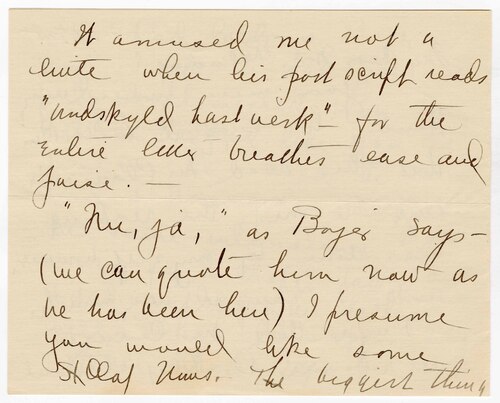 It amused me not a
little when his post script reads
"Undskyld hastverk" - for the
entire letter breathes ease and
poise. -
"Nu, ja," as Bojer says -
(we can quote him now as
he has been here) I presume
you would like some
St Olaf News. The biggest thing